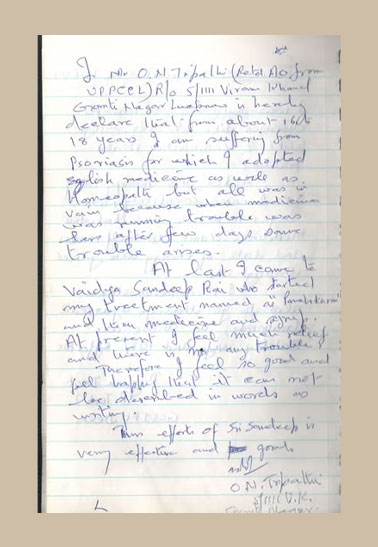 I Mr O.N Tripathi (Retd AO from
UPPCL) R/o 5/1111 Viram Khand
Gomti Nagar Lucknow is hereby
declare that from about 16 to
18 years I am suffering from
Psoriasis for which I adopted
english medicine as well as
Homeopath but all was in
vain because when medicine
was running trouble was
less after few days same
trouble arises.
At last I came to
Vaidya Sandeep Rai who started
my treatment named as
and then medicine and syrup.
At present I feel much relief
and there is no any trouble
Therefore I feel so good and
feel happy that it can not
be described in words as
writing.
Thus efforts of Sri Sandeep is
very effective and good.
O.N. Tripathi
5/1111 V.K.
Gomti Nagar